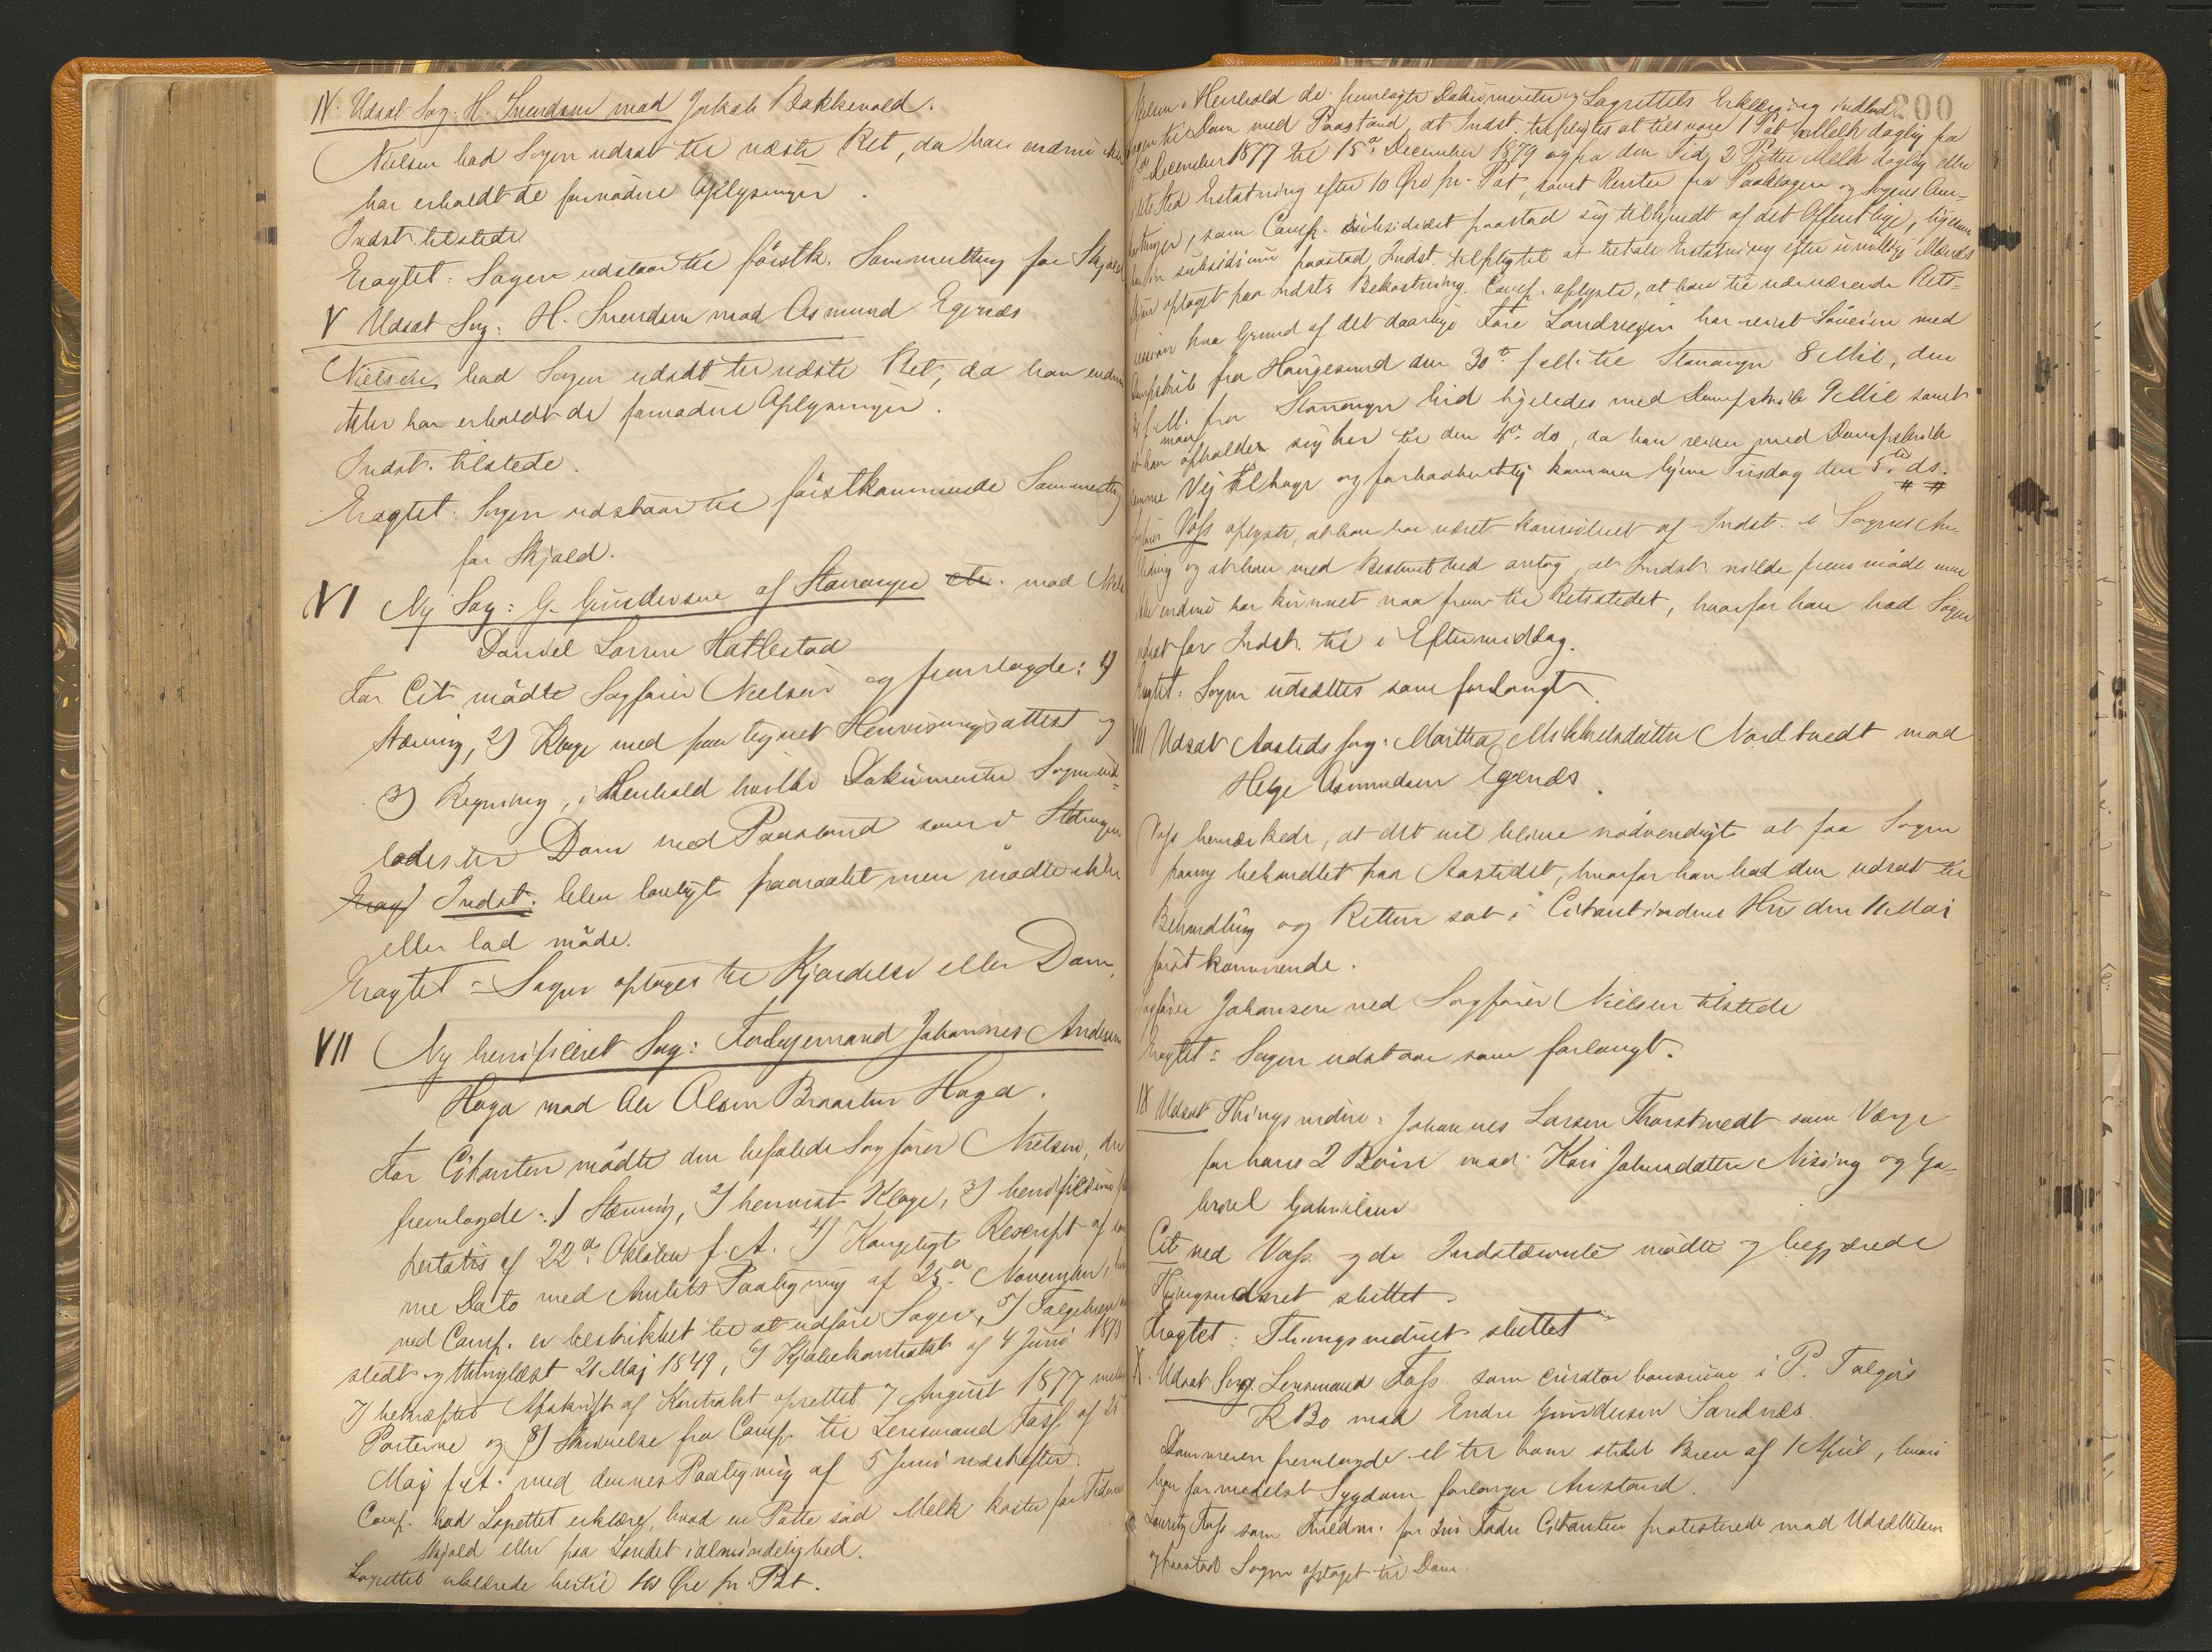 IV. Udsat Sag: H. Svendsen mod Jakob Bakkevold.
Nielsen bad Sagen udsat til næste Ret, da han endnu ikke
har erholdt de fornødne Oplysninger.
Indst. tilstede
Eragtet: Sagen udstaar til førstk. Sommerting for Skjold
V Udsat Sag: H. Svendsen mod Asmund Egenæs
Nielsen bad Sagen udsat til næste Ret, da han endnu
ikke har erholdt de fornødne Oplysninger.
Indst. tilstede.
Eragtet: Sagen udstaar til førstkommende Sommerting
for Skjold.
VI Ny Sag: G. Gundersen af Stavanger mod
Daniel Larsen Hatlestad
For Cit. mødte Sagfører Nielsen og fremlagde: 1)
Stævning, 2) Klage med paategnet Henvisningsattest og
3) Regning, i Henhold hvilke Dokumenter Sagen ind-
lodes til Dom med Paastand som i Stævningen
Indst. blev lovligt paaraabt men mødte ikke
eller lod møde.
Eragtet: Sagen optages til Kjendelse eller Dom.
VII Ny beneficeret Sag: Forlagsmand Johannes Andersen
Haga mod Ole Olsen Braaten Haga.
For Citanten mødte den befalede Sagfører Nielsen, der
fremlagde: 1) Stævning, 2) henvist Klage, 3) beneficium
pertatis af 22de Oktober f. A. 4) Kongeligt Rescript af
me Dato med Amtets Paategning af 25de November,
ved Comp. er beskikket til at udføre Sagen, 5)
stedt og thinglæst 21 Maj 1849, 6) Kjøbekontrakt af 4 Juni 1873
7) bekræftet Afskrift af Kontrakt oprettet 7 August 1877 mellem
Parterne og 8) Skrivelse fra Comp. til Lensmand Fass af 25
Maj f. A. med dennes Paategning af 5 Juni næstefter.
Comp. bad Lagrettet erklære, hvad en Potte sød Melk koster for Tiden
Skjold eller paa Landet i almindelighed.
Lagrettet erklærede hertil 10 Øre pr. Pot.
200
Henhold de fremlagte Dokumenter og Lagrettets Erklæring indlod
til Dom med Paastand, at Indst. tilpligtes at tilsvare 1 Pot Melk daglig fra
December 1877 til 15de December 1879 og fra den Tid 2 Potter Melk daglig eller
Sted Erstatning efter 10 Øre pr. Pot, samt Renter fra Paaklagen og Sagens Om-
kostninger, som Comp. subsidiært paastod sig tilkjendt af det Offentlige, ligesom
subsidiært paastod Indst. tilpligtet at betale Erstatning efter uvillige Mænds
Skjøn optaget paa Indsts Bekostning. Comp. oplyste, at han til nærværende Rets-
session paa Grund af det daarlige Føre Landvejen har reist Søveien med
Dampskib fra Haugesund den 30te f. M. til Stavanger 8 Mil, den
f. M. fra Stavanger hid ligeledes med Dampskib 9 Mil samt
at han maa opholde sig her til den 4de ds, da han reiser med Dampskib
samme Vej tilbage og forhaabentlig kommer hjem Tirsdag den 5te ds.
Sagfører Vass oplyste, at han har været konsuleret af Indst. i Sagens An-
ledning og at han med Bestemthed antog, at Indst. vilde fremmøde men
ikke endnu har kunnet naa frem til Retsstedet, hvorfor han bad Sagen
udsat for Indst. til i Eftermiddag.
Eragtet: Sagen udsættes som forlangt.
VIII Udsat Aastedssag: Martha Mikkelsdatter Nordtvedt mod
Helge Asmundsen Egenæs.
Vass bemærkede, at det vil blive nødvendigt at faa Sagen
paany behandlet paa Aastedet, hvorfor han bad den udsat til
Behandling og Retten sat i Citantindens Hus den 11 Mai
førstkommende.
Sagfører Johansen ved Sagfører Nielsen tilstede
Eragtet: Sagen udstaar som forlangt.
IX Udsat Thingsvidne: Johannes Larsen Thorstvedt som Værge
for hans 2 Børn mod Kari Johnsdatter Nising og Ga-
briel Gabrielsen
Cit. ved Vass og de Indstævnte mødte og begjærede
Thingsvidnet sluttet.
Eragtet: Thingsvidnet sluttet
X. Udsat Sag: Lensmand Fass som curator bonorum i P. Talgøs
K Bo mod Endre Gundersen Sandnæs.
Dommeren fremlagde et til ham stilet Brev af 1 April, hvori
han formedelst Sygdom forlanger Anstand.
Lauritz Fass som Fuldm. for sin Fader Citanten protesterede mod Udsættelsen
og paastod Sagen optaget til Dom.